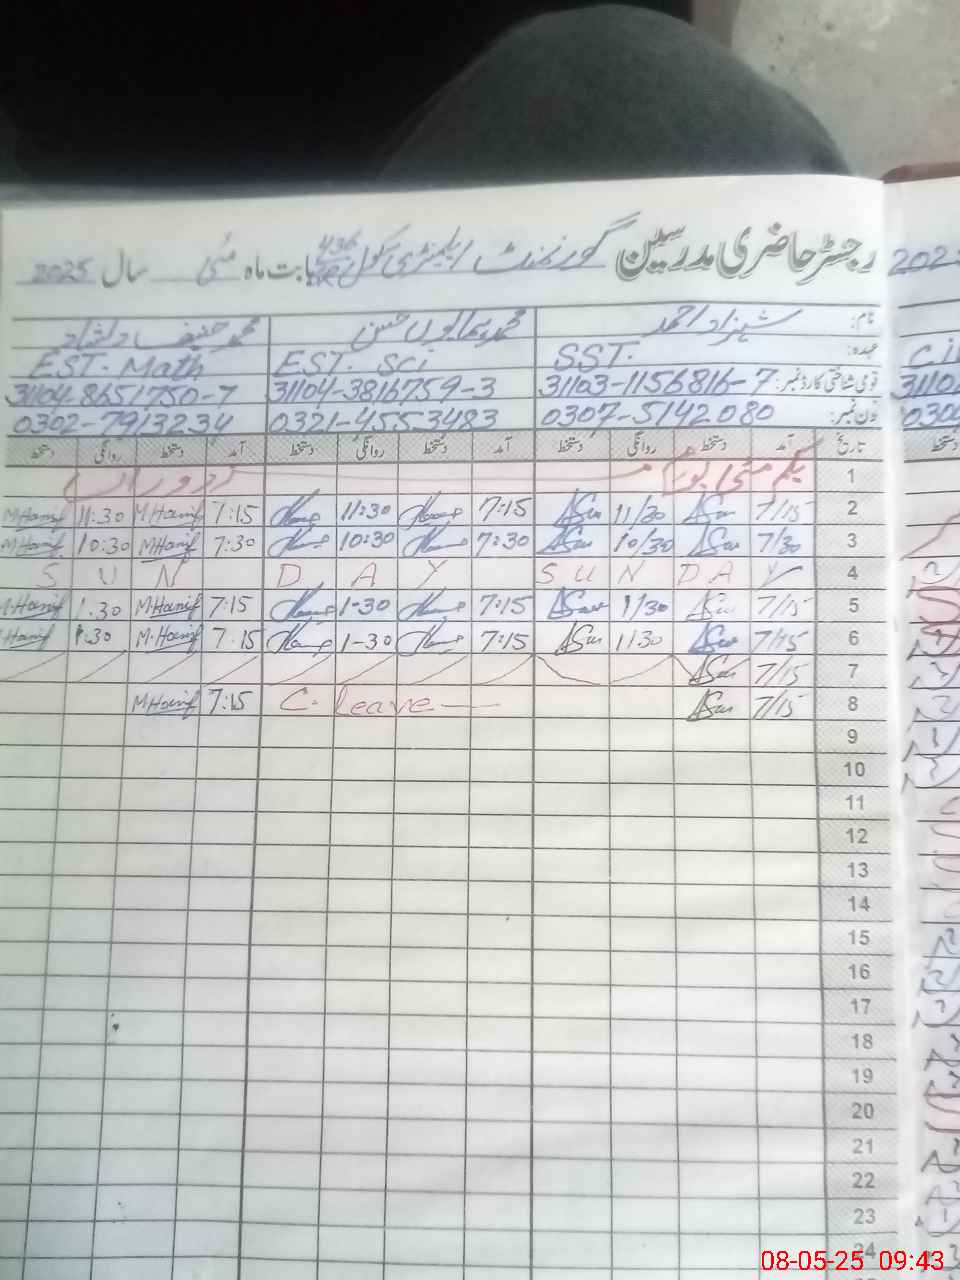 رجسٹر حاضری مدرسین گورنمنٹ ایلیمنٹری سکول 436 بابت ماہ مئی سال 2025
نام: شہزاد احمد محمد ہمایوں حسن محمد حنیف
عہدہ: SST. EST. Sci EST. Math
قومی شناختی کارڈ نمبر: 31103-1156816-7 31104-3816759-3 31104-8651750-7
فون نمبر: 0307-5142080 0321-4553483 0302-7913234
تاریخ آمد دستخط روانگی دستخط آمد دستخط روانگی دستخط آمد دستخط روانگی دستخط
1 یکم مئی
2 7/15 11/30 7:15 11:30 7:15 M.Hanif 11:30 M.Hanif
3 7/30 10/30 7:30 10:30 7:30 M.Hanif 10:30 M.Hanif
4 SUNDAY SUNDAY
5 7/15 1/30 7:15 1-30 7:15 M.Hanif 1.30 M.Hanif
6 7/15 1130 7:15 1-30 7:15 M.Hanif 1.30 Hanif
7 7/15
8 7/15 C. leave 7:15 M.Hanif
9
10
11
12
13
14
15
16
17
18
19
20
21
22
23
24
08-05-25 09:43